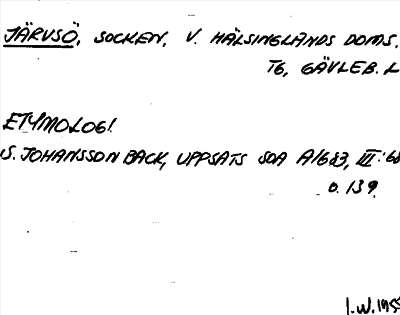 JÄRVSÖ, SOCKEN, V. HÄLSINGLANDS DOMS.
TG, GÄVLEB. L
ETYMOLOGI
S. JOHANSSON BACK, UPPSATS SOA III:
O. 139.
I.W.